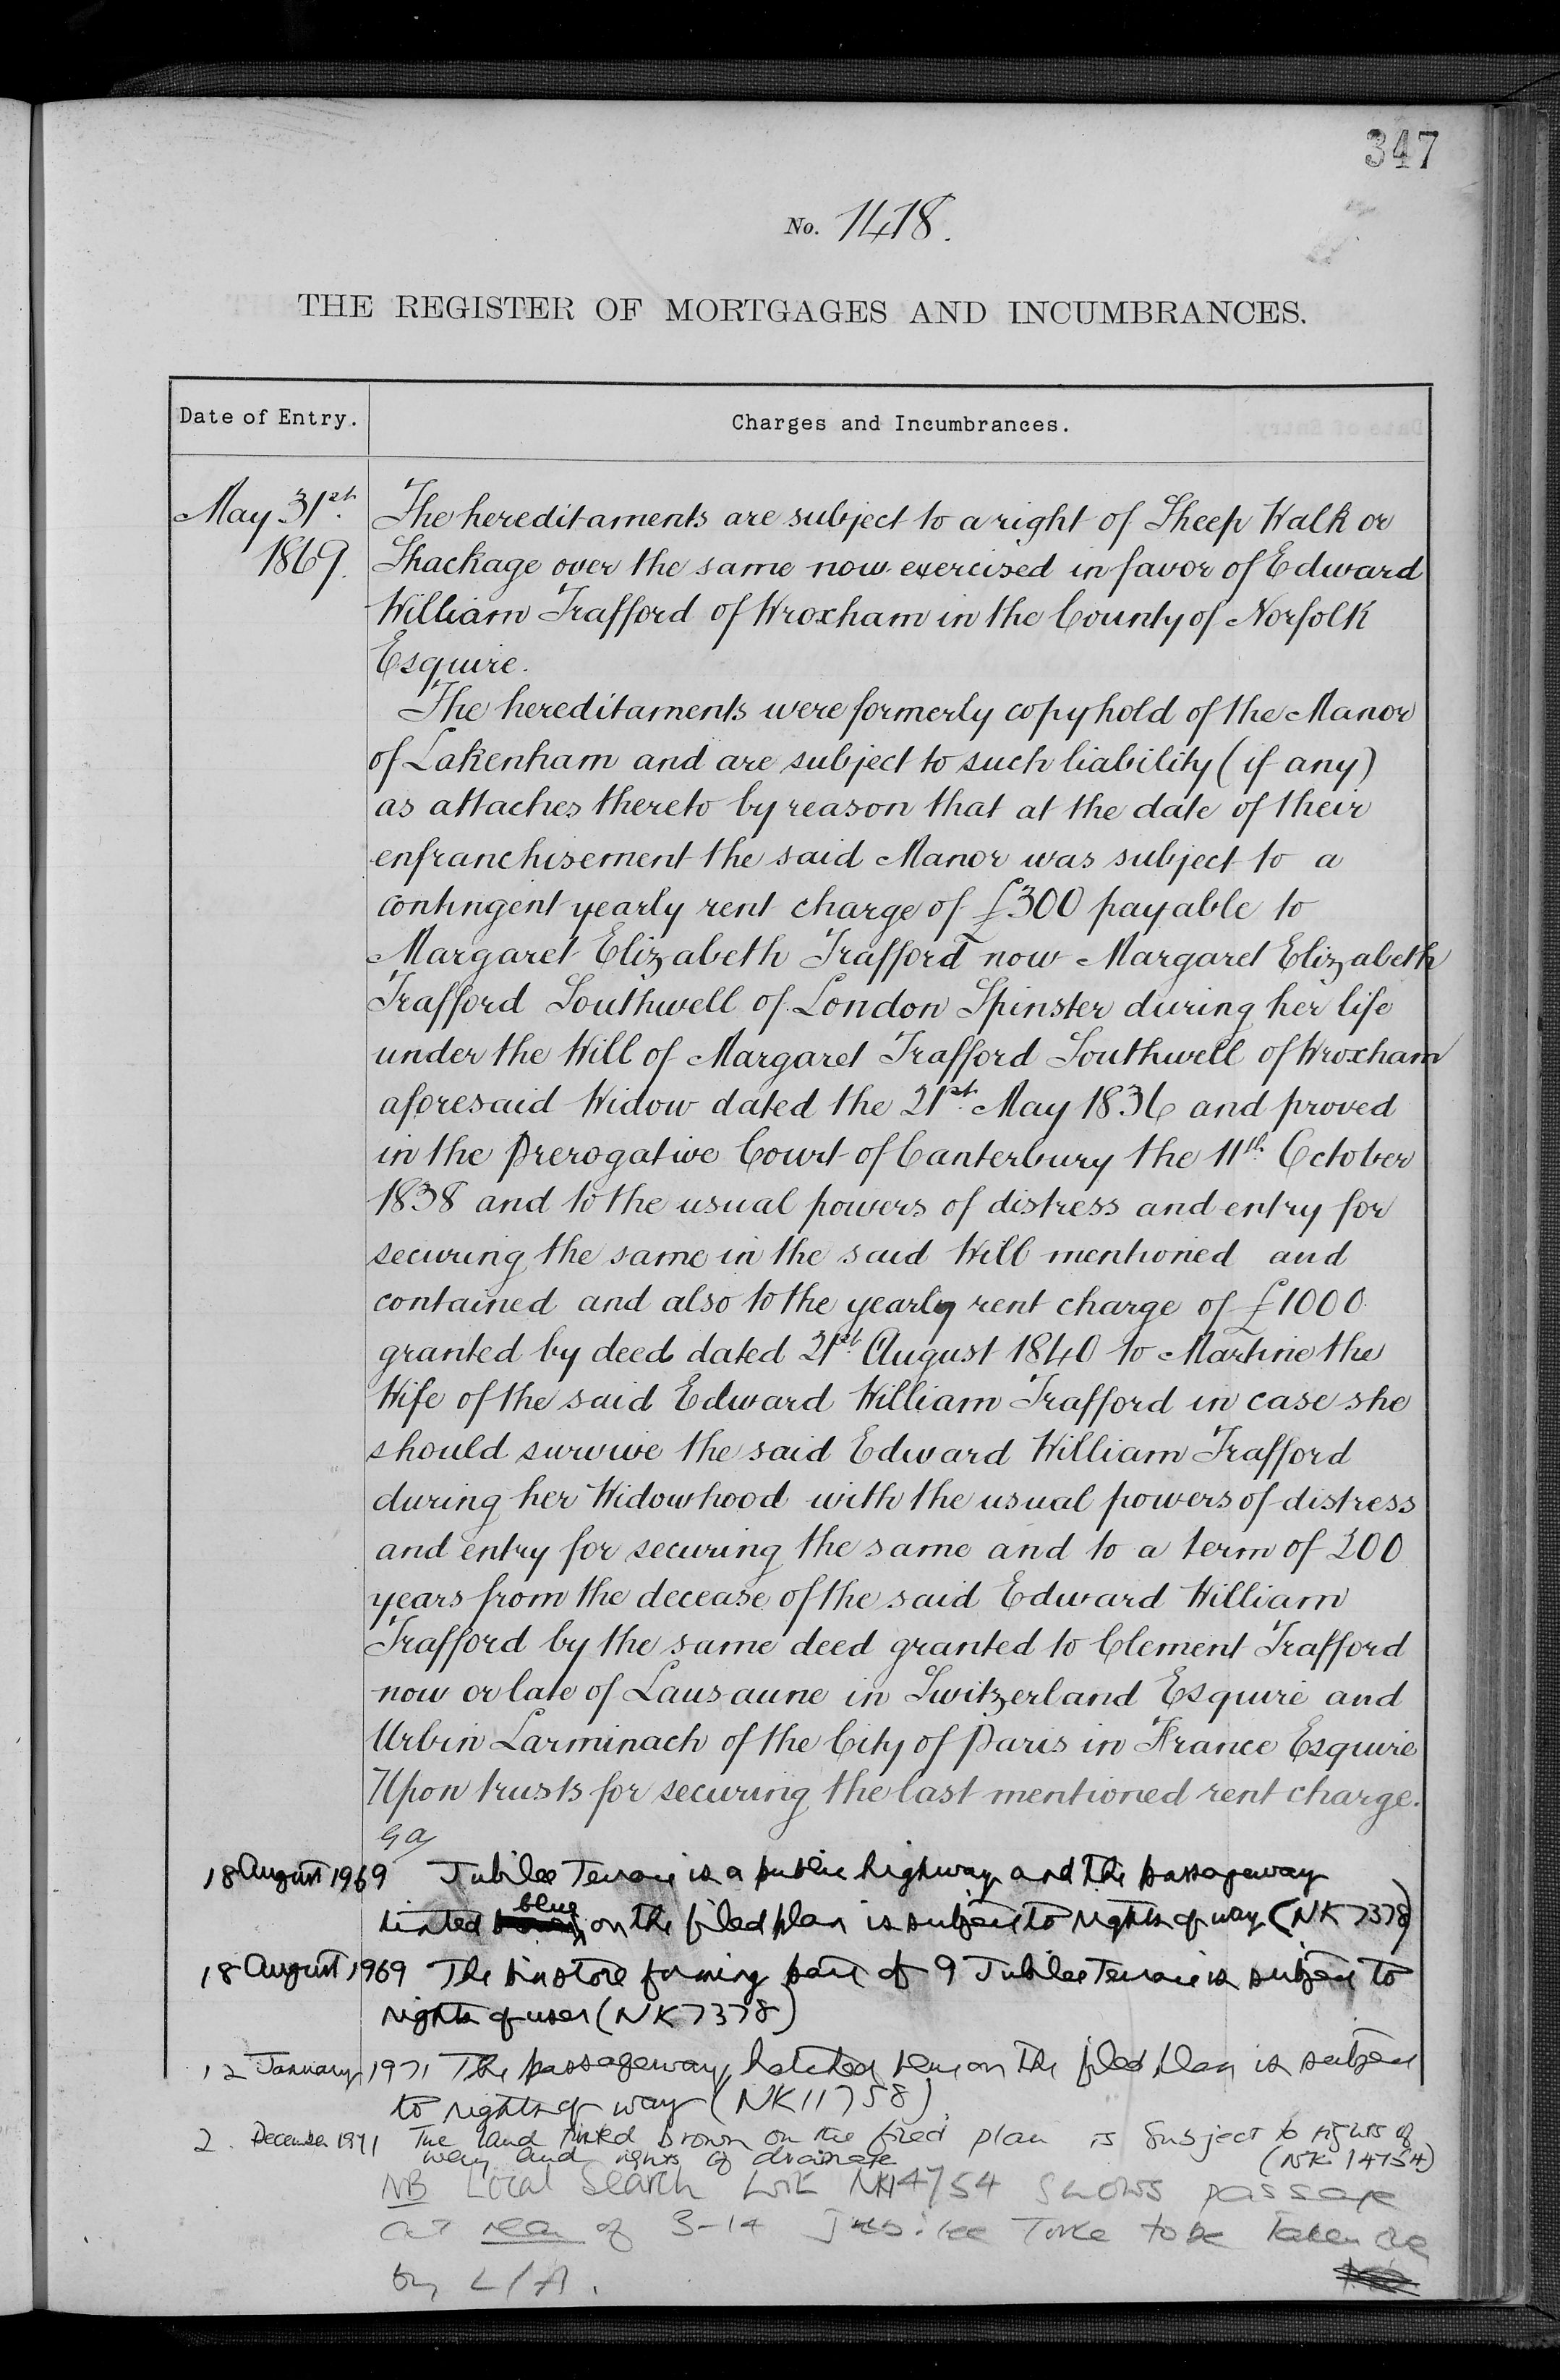 347
No. 1418.
THE REGISTER OF MORTGAGES AND INCUMBRANCES.
Date of Entry. Charges and Incumbrances.
May 31st. The hereditaments are subject to a right of Sheep Walk or
1869. Shackage over the same now exercised in favor of Edward
William Trafford of Wroxham in the County of Norfolk
Esquire.
The hereditaments were formerly copyhold of the Manor
of Lakenham and are subject to such liability (if any)
as attaches thereto by reason that at the date of their
enfranchisement the said Manor was subject to a
contingent yearly rent charge of £300 payable to
Margaret Elizabeth Trafford now Margaret Elizabeth
Trafford Southwell of London Spinster during her life
under the Will of Margaret Trafford Southwell of Wroxham
aforesaid Widow dated the 21st. May 1836 and proved
in the Prerogative Court of Canterbury the 11th. October
1838 and to the usual powers of distress and entry for
securing the same in the said Will mentioned and
contained and also to the yearly rent charge of £1000
granted by deed dated 21st. August 1840 to Martine the
Wife of the said Edward William Trafford in case she
should survive the said Edward William Trafford
during her Widowhood with the usual powers of distress
and entry for securing the same and to a term of 200
years from the decease of the said Edward William
Trafford by the same deed granted to Clement Trafford
now or late of Lausaune in Switzerland Esquire and
Urbin Larminach of the City of Paris in France Esquire
Upon trusts for securing the last mentioned rent charge.
18 August 1969 Jubilee Terrace is a public highway and the passageway
tinted blue on the filed plan is subject to rights of way (NK 7378)
18 August 1969 The bin store forming part of 9 Jubilee Terrace is subject to
rights of user (NK 7378)
12 January 1971 The passageway hatched blue on the filed plan is subject
to rights of way (NK 11758)
2 December 1971 The land tinted brown on the filed plan is subject to rights of
way and rights of drainage (NK 14754)
NB Local Search with NK14754 shows passage
at rear of 3-14 Jubilee Trce to be taken over
by L/A.